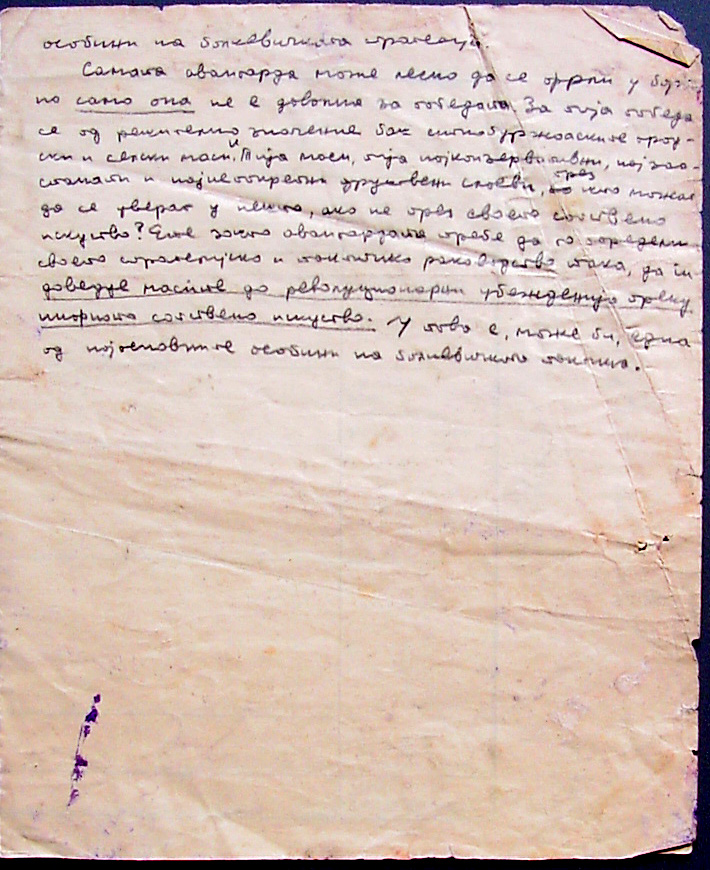 особини на болшевичката стратегија.
Самата авангарда може лесно да се фрли у борба
но само она не е доволна за победата. За тија победа
се од решително значение баш ситнобуржоаските град-
ски и селски маси. Тија маси, тија најконзервативни, најзао-
станати и најнепокретни друштвени слоеви, през што можат
да се уверат у нешто, ако не през своето сопствено
искуство? Ете зашто авангардата требе да го определи
своето стратегијско и тактичко раководство така, да ги
доведуе масите до револуционарни убежденија преку
нивното сопствено искуство. У това е, може би, една
од најосновните особини на болшевичката тактика.